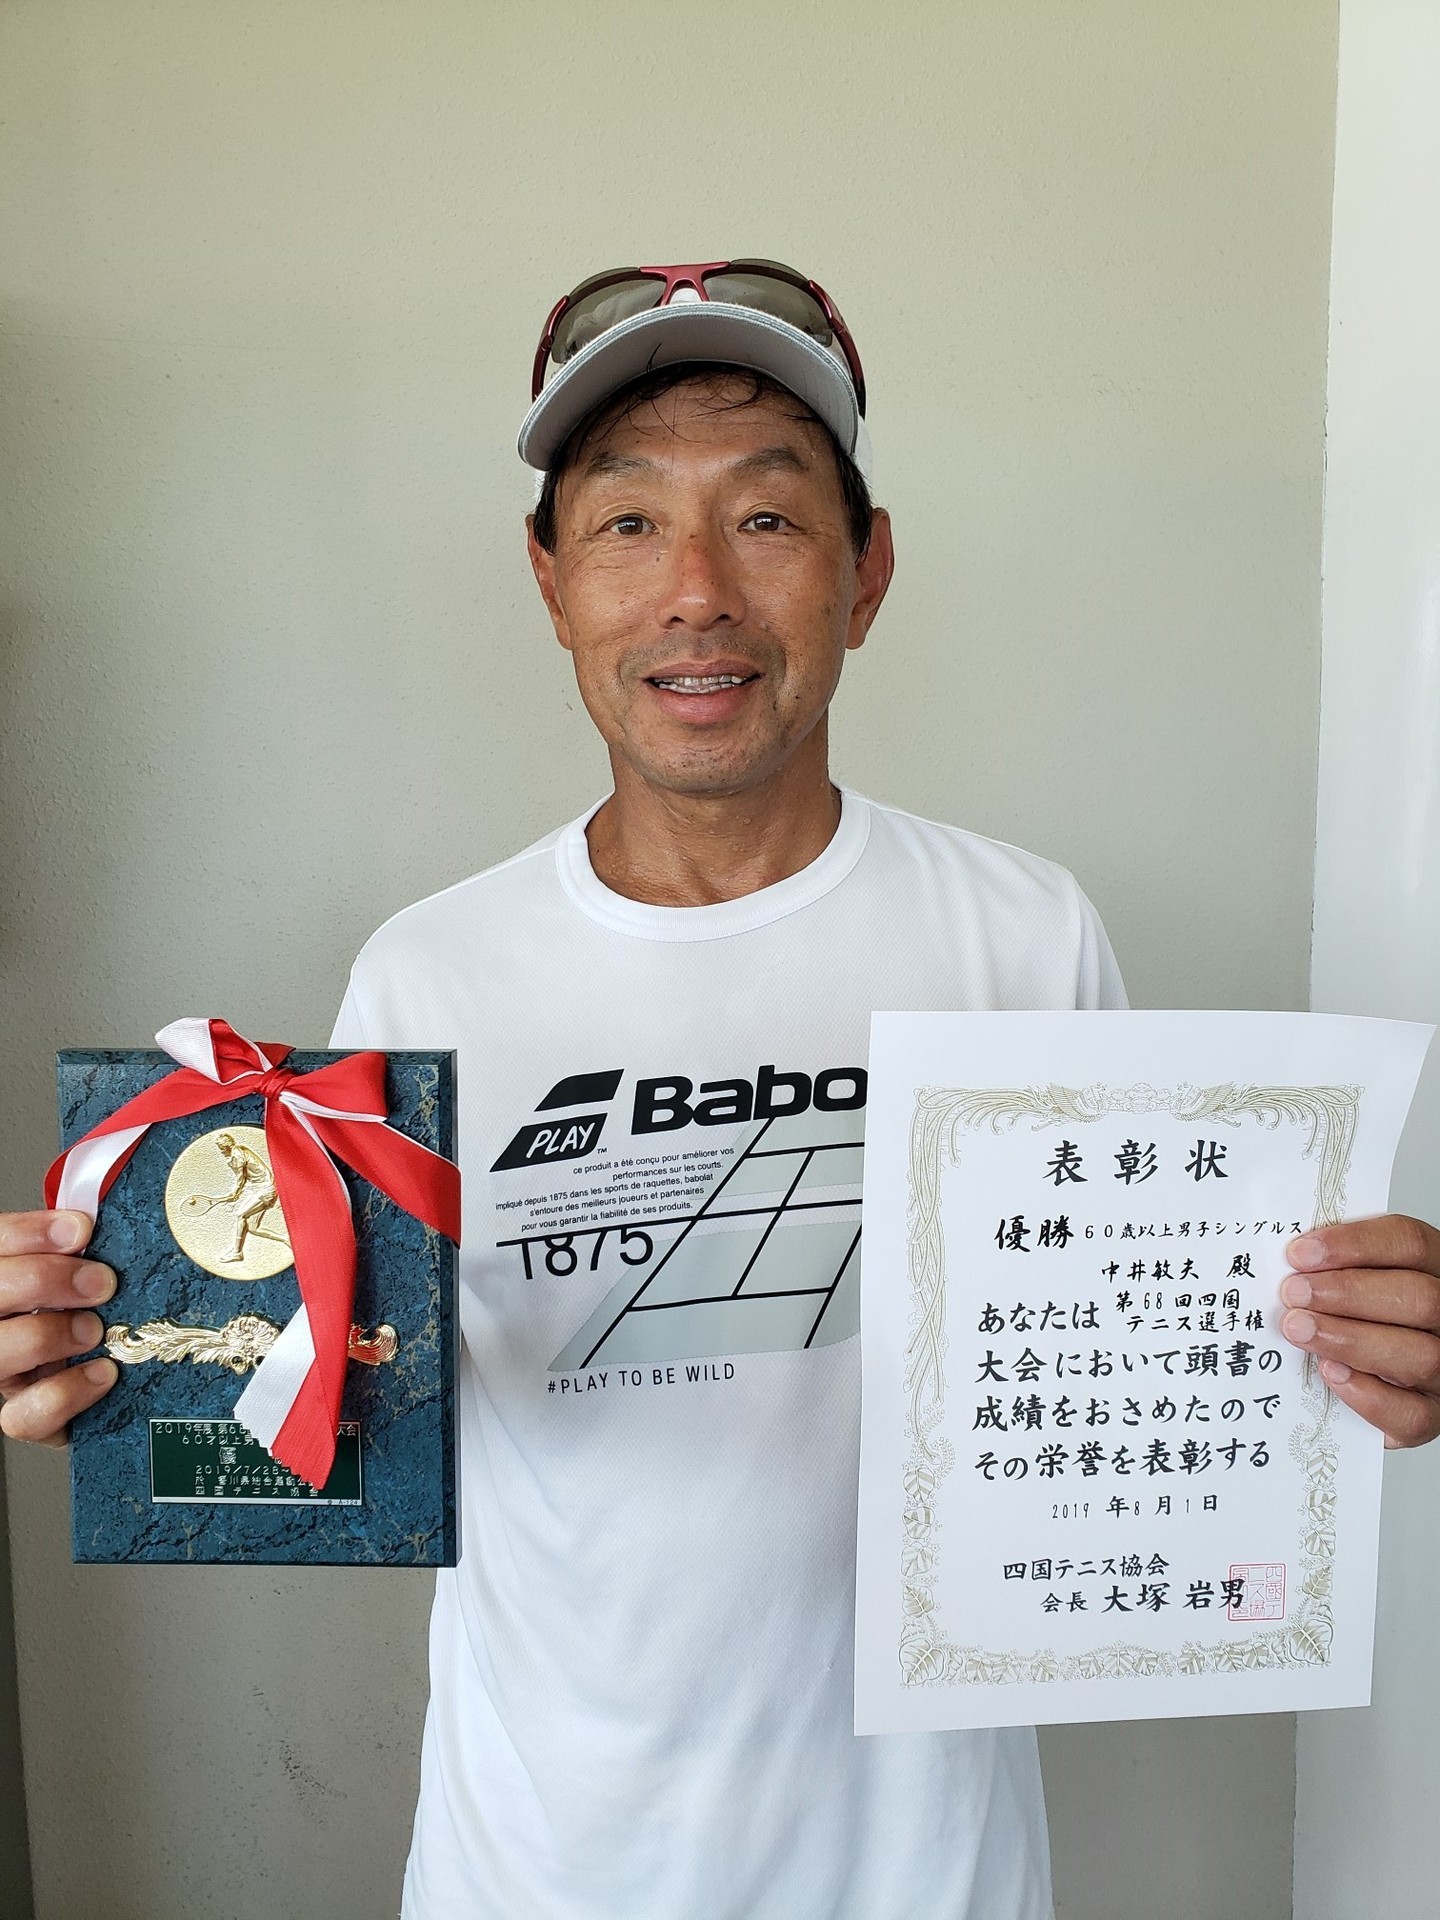 PLAY
Babo
ce produit a été conçu pour améliorer vos
performances sur les courts.
impliqué depuis 1875 dans les sports de raquettes, babolat
s'entoure des meilleurs joueurs et partenaires
pour vous garantir la fiabilité de ses produits.
1875
#PLAY TO BE WILD
2019年度 第68 大会
60才以上男
優
2019/7/28~
於 香川県総合運動公
四国テニス協会
A-124
表彰状
優勝 60歳以上男子シングルス
中井敏夫 殿
あなたは 第68回四国
テニス選手権
大会において頭書の
成績をおさめたので
その栄誉を表彰する
2019 年8 月 1 日
四国テニス協会
会長 大塚 岩男